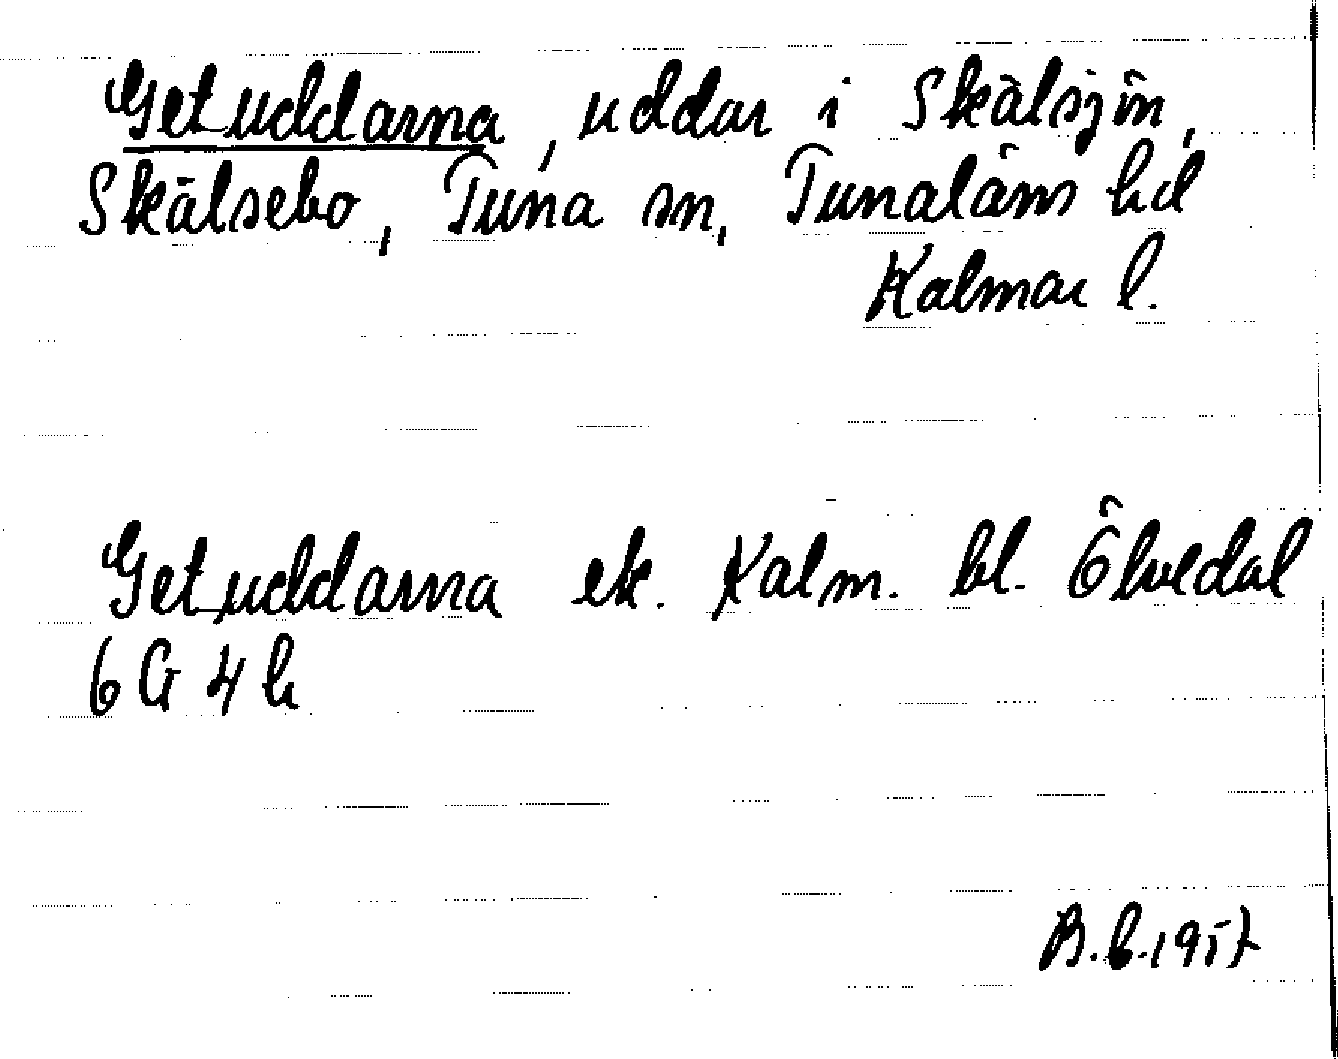 Getuddarna, uddar i Skälsjön,
Skälsebo, Tuna sn, Tunaläns hd
Kalmar l.
Getuddarna ek. Kalm. bl. Ölvedal
6 G 4 h
B.L.1957